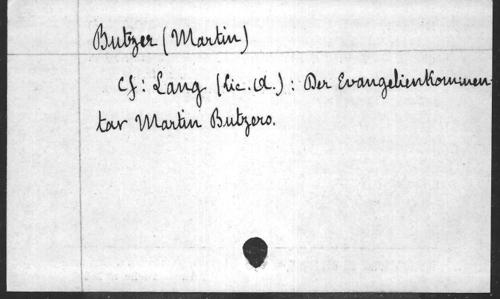 Butzer (Martin)
Cf: Lang (Lic. A.): Der Evangelienkommen-
tar Martin Butzers.